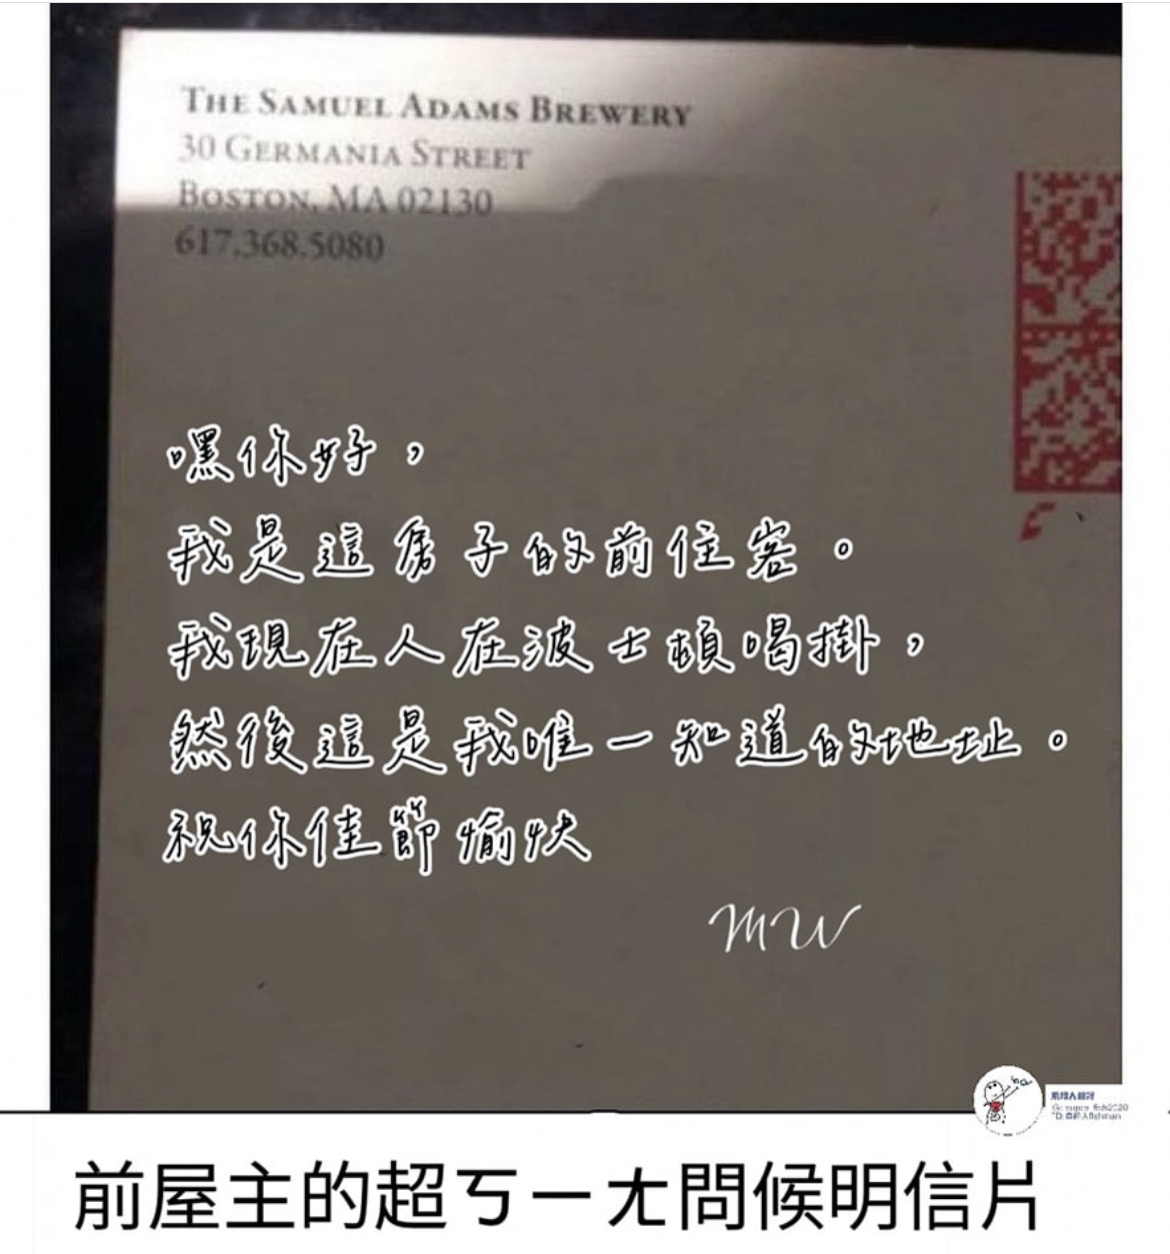 THE SAMUEL ADAMS BREWERY
30 GERMANIA STREET
BOSTON, MA 02130
617.368.5080
嘿你好，
我是這房子的前住客。
我現在人在波士頓喝掛，
然後這是我唯一知道的地址。
祝你佳節愉快
MW
前屋主的超ㄎㄧㄤ問候明信片